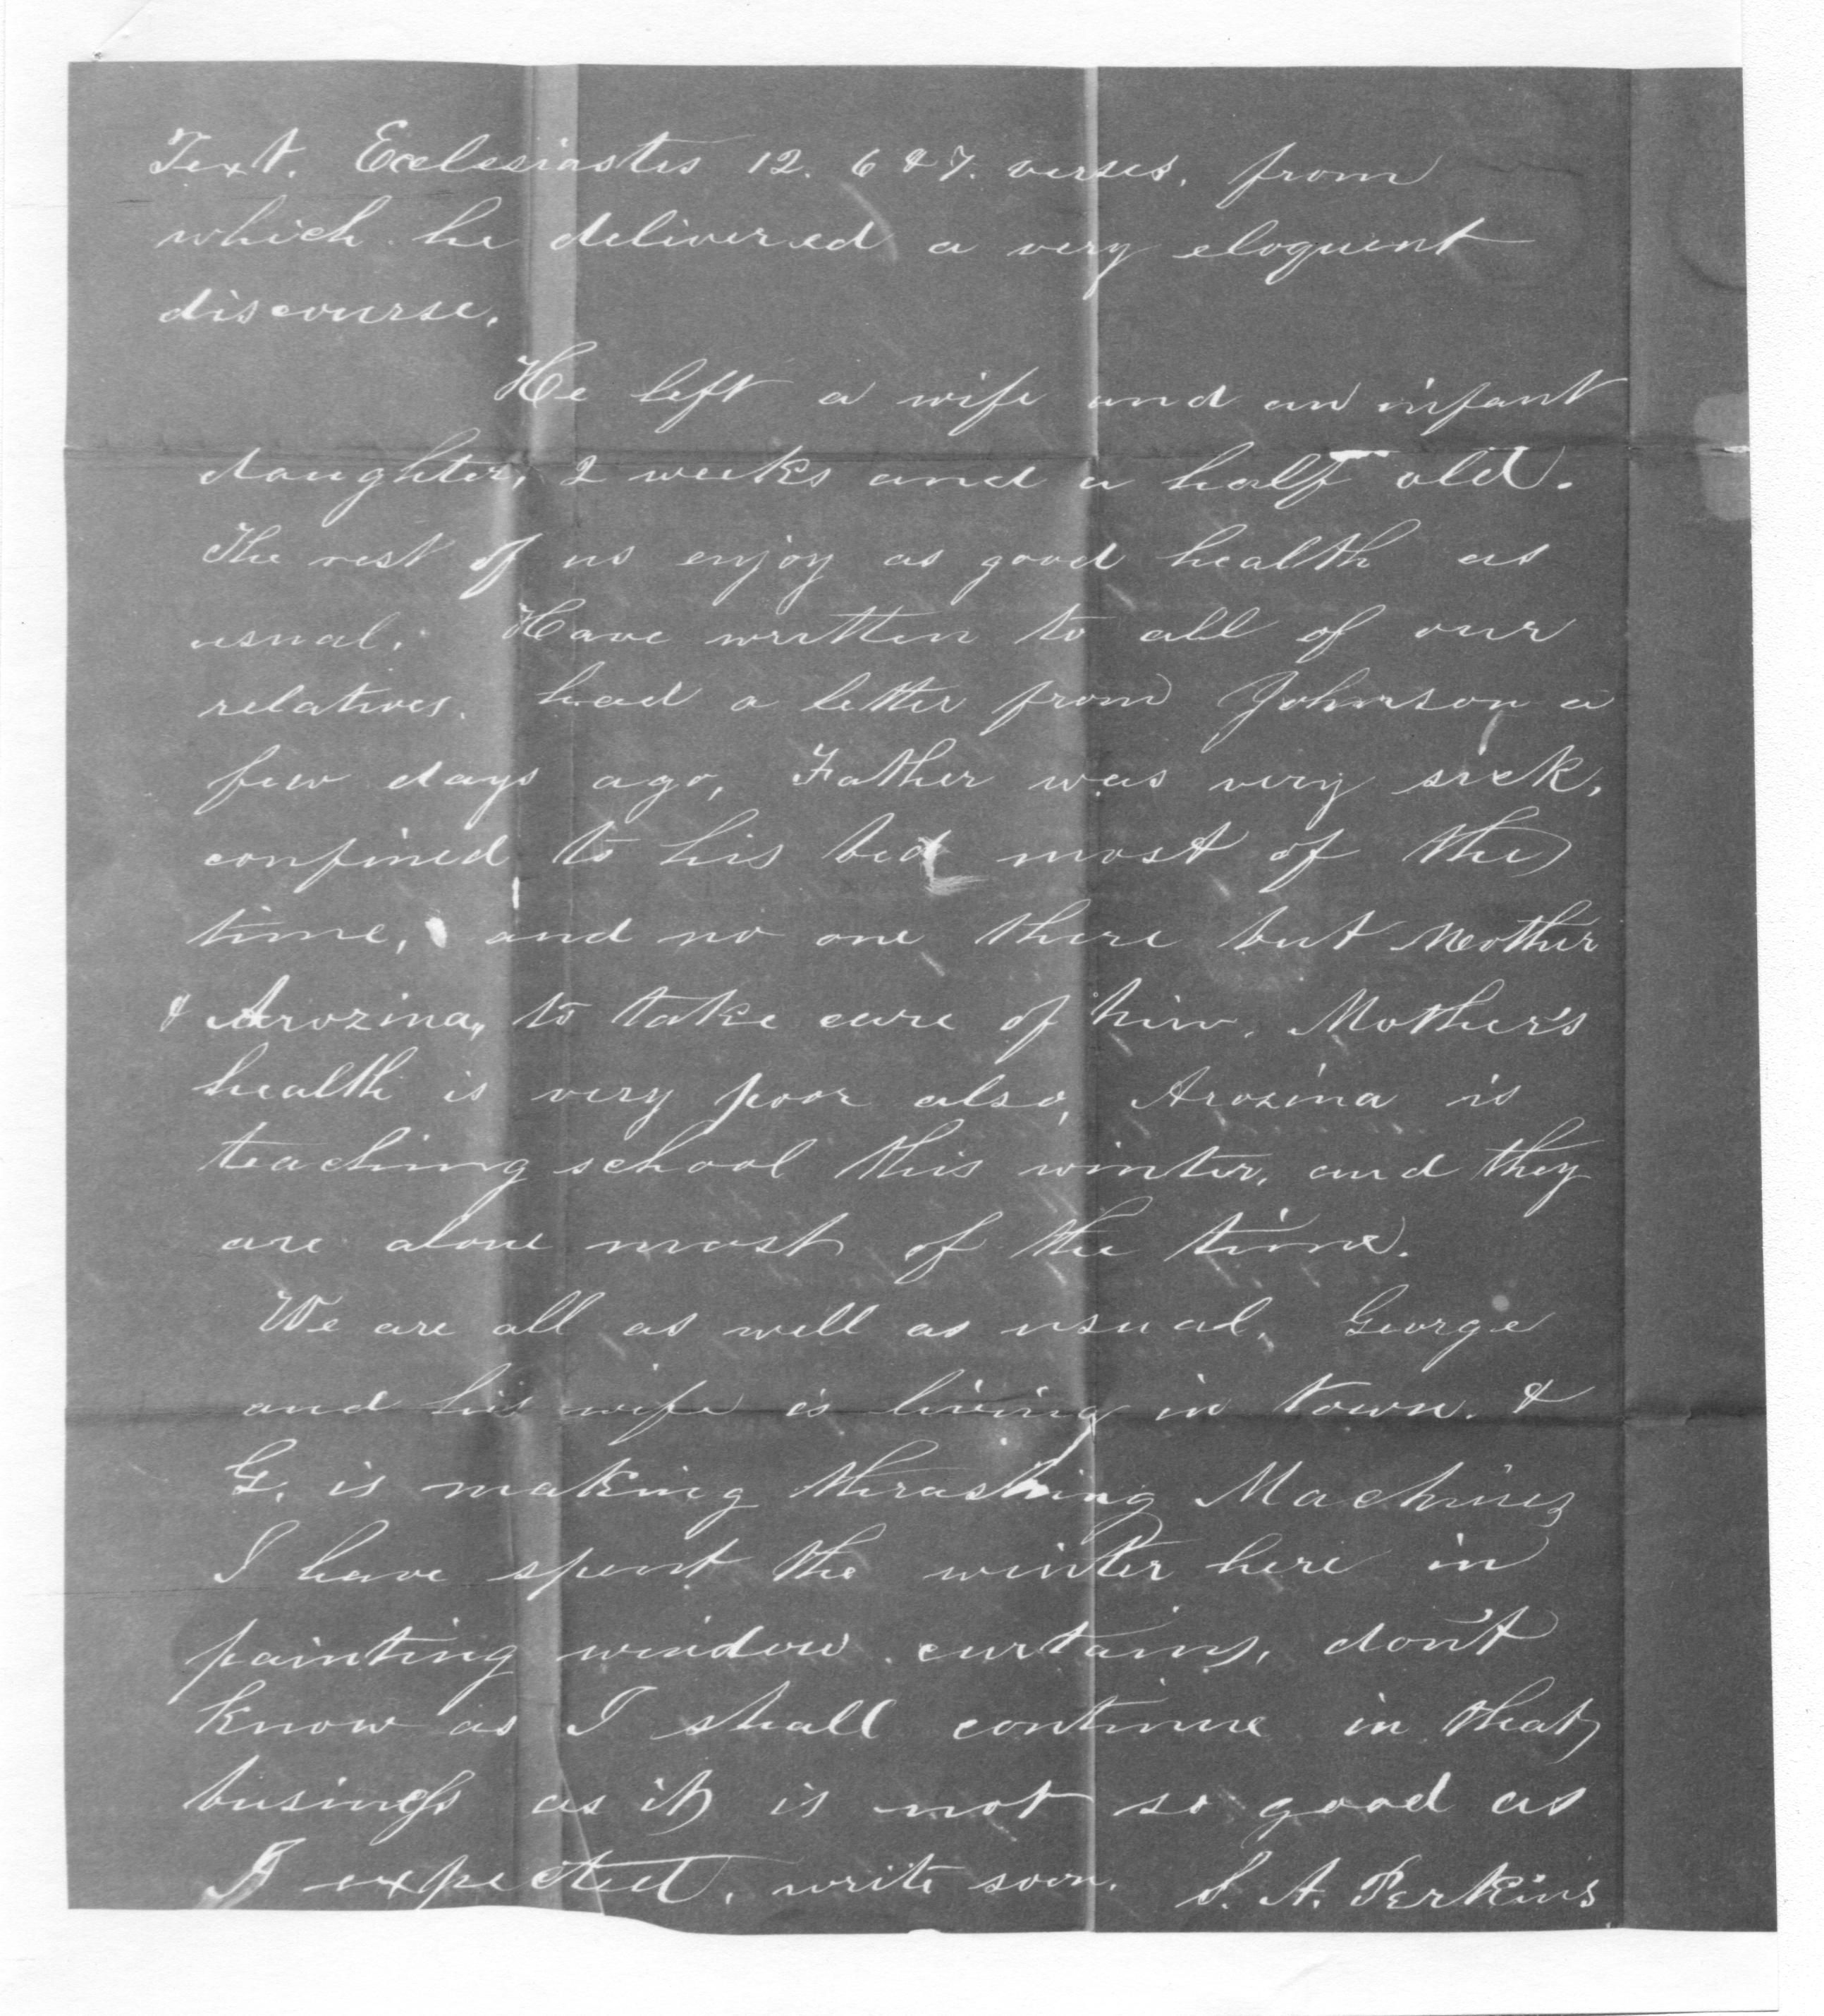 Text. Ecclesiastes 12. 6 & 7. verses, from
which he delivered a very eloquent
discourse.
He left a wife and an infant
daughter, 2 weeks and a half old.
The rest of us enjoy as good health as
usual. Have written to all of our
relatives. had a letter from Johnson a
few days ago, Father was very sick,
confined to his bed most of the
time, and no one there but Mother
& Arozina, to take care of him. Mother's
health is very poor also, Arozina is
teaching school this winter, and they
are alone most of the time.
We are all as well as usual. George
and his wife is living in town. &
G. is making thrashing Machines
I have spent the winter here in
painting window curtains, don't
know as I shall continue in that
business as it is not so good as
I expected. write soon. S. A. Perkins